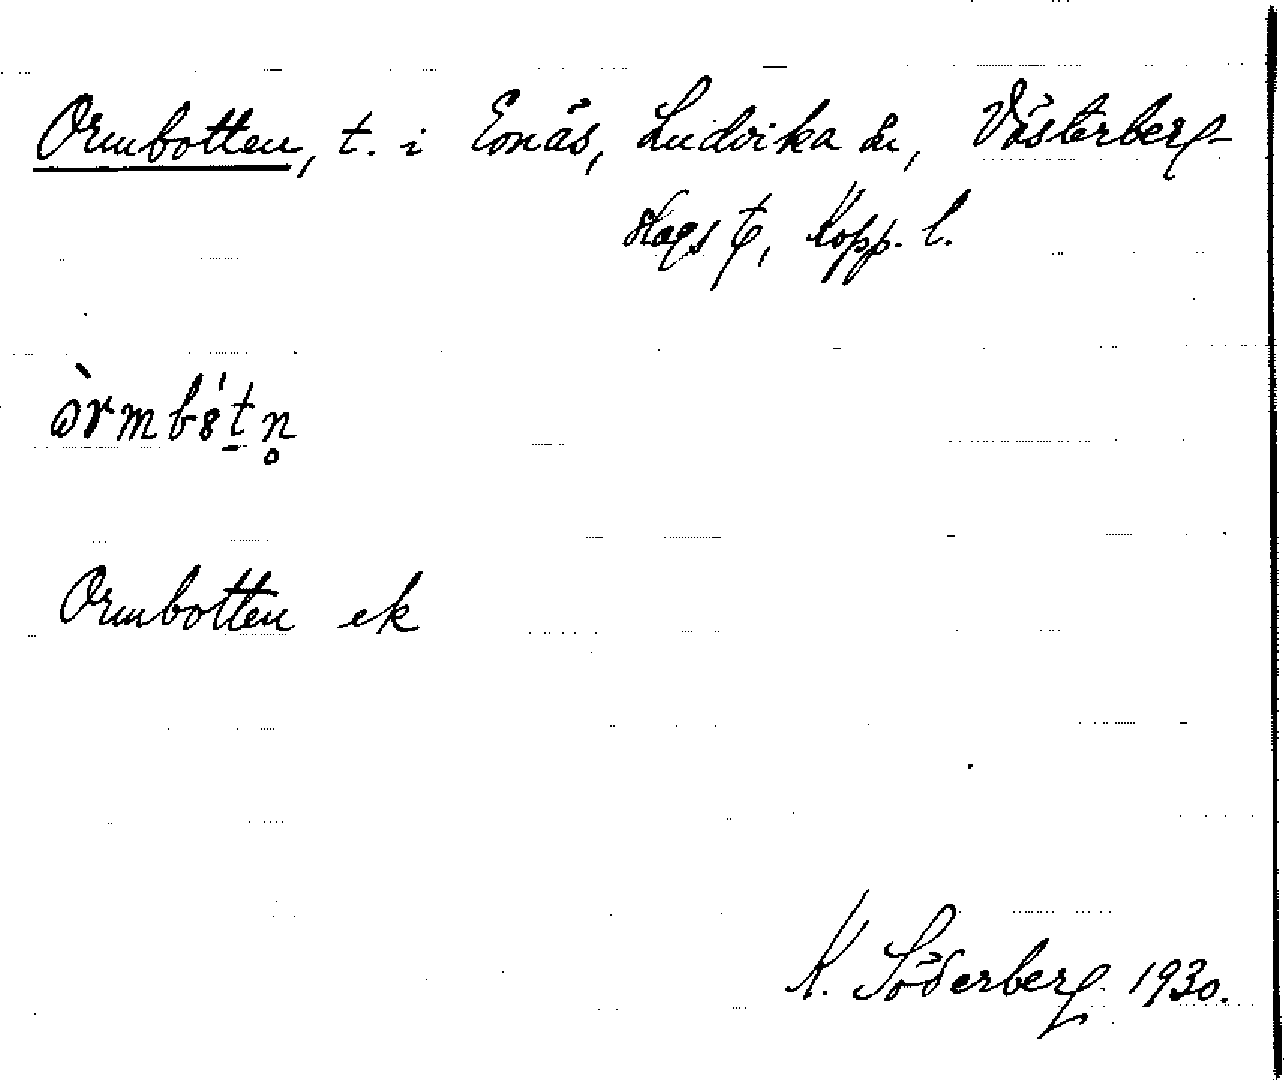 Ormbotten, t. i Enäs, Ludvika sn, Västerberg-
slags tg, Kopp. l.
Ormbotten ek
K. Söderberg 1930.